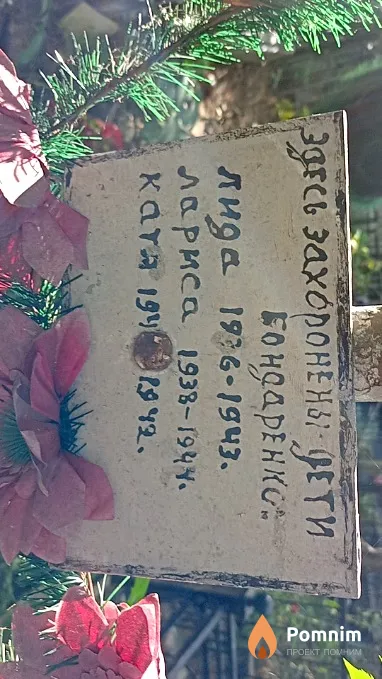 Здесь захоронены дети
Бондаренко"
Лида 1936-1943.
Лариса 1938-1944.
Катя 1942.
Pomnim
ПРОЕКТ ПОМНИМ